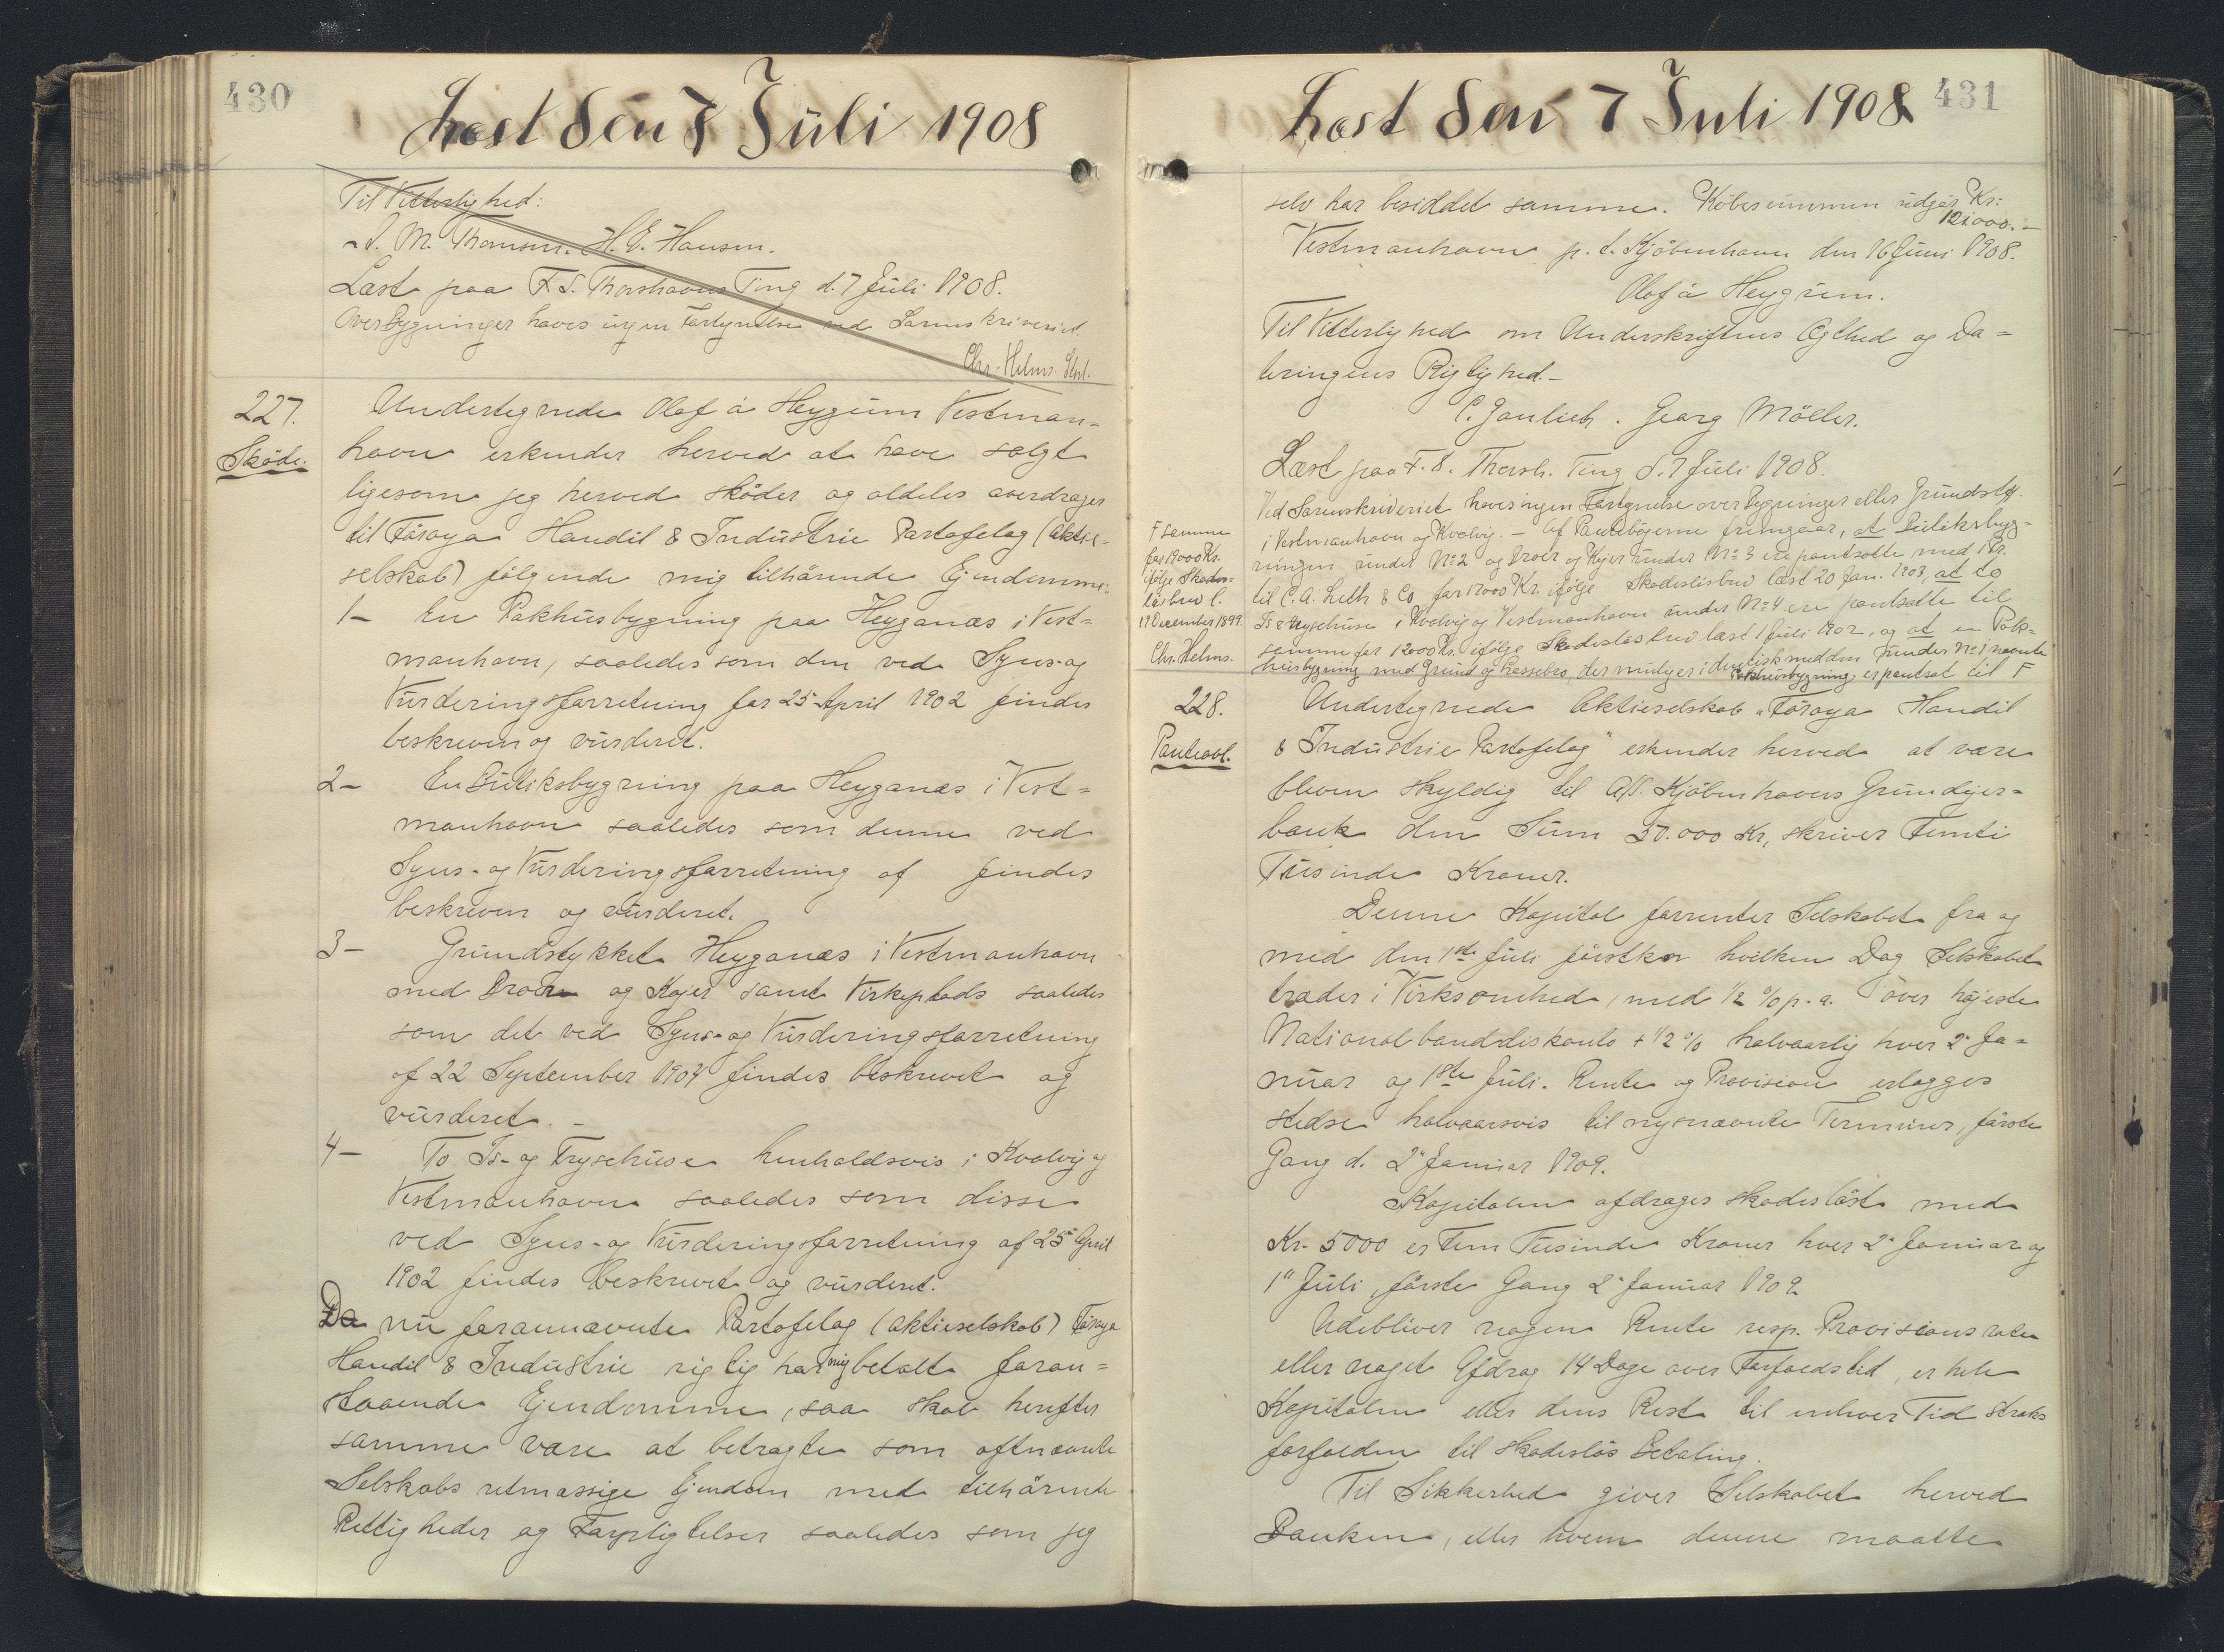 430
Læst den 7 Juli 1908
Til Vitterlighed:
J. M. Thomsen. H. E. Hansen.
Læst paa F. S. Thorshavns Ting d. 7 Juli 1908.
Over Bygninger haves ingen Forlydelse ved Sorenskriveriet.
Chr. Helms. Kst.
227.
Sköde.
Undertegnede Olaf á Heygum Vestman-
havn erkender herved at have solgt
ligesom jeg herved sköder og aldeles overdrager
til Föroya Handil & Industrie Partafelag (Aktie-
selskab) fölgende mig tilhörende Ejendomme:
1- En Pakhusbygning paa Heyganæs i Vest-
manhavn, saaledes som den ved Syns- og
Vurderingsforretning for 25 April 1902 findes
beskreven og vurderet.
2- En Butiksbygning paa Heyganæs i Vest-
manhavn saaledes som denne ved
Syns- og Vurderingsforretning af findes
beskreven og vurderet.
3- Grundstykket Heyganæs i Vestmanhavn
med Broer og Kajer samt Virkeplads saaledes
som det ved Syns- og Vurderingsforretning
af 22 September 1904 findes beskrevet og
vurderet. -
4- To Is- og Frysehuse henholdsvis i Kvalvig og
Vestmanhavn saaledes som disse
ved Syns- og Vurderingsforretning af 25 April
1902 findes beskrevet og vurderet.
Da nu forannævnte Partafelag (aktieselskab) Föroya
Handil & Industrie rigtig har mig betalt foran-
staaende Ejendomme, saa skal herefter
samme være at betragte som oftnævnte
Selskabs retmæssige Ejendom med tilhörende
Rettigheder og Forpligtelser saaledes som jeg
431
Læst den 7 Juli 1908
selv har besiddet samme. Köbesummen udgör Kr:
121000.-
Vestmanhavn p. t. Kjöbenhavn den 16 Juni 1908.
Olaf á Heygum.
Til Vitterlighed om Underskriftens Ægthed og Da-
teringens Rigtighed.-
C. Garlieb. Georg Möller.
Læst paa F. S. Thorsh. Ting d. 7 Juli 1908.
Ved Sorenskriveriet haves ingen Forlydelse over Bygninger eller Grundstk.
i Vestmanhavn og Kvalvig. - Af Pantebögerne fremgaar, at Butiksbyg-
ningen under No 2 og Broer og Kajer under No 3 ere pantsatte med 1 Pr.
til C. A. Leth & Co for 17000 Kr. ifölge Skadeslösbrev læst 20 Jan. 1903, at to
Is & Frysehuse i Kvalvig og Vestmanhavn under No 4 ere pantsatte til
samme for 12000 Kr. ifölge Skadeslösbrev læst 1 Juli 1902, og at en Pak-
husbygning med Grund og Lossebro, der mulig er identisk med den under No 1 nævnte
Pakhusbygning er pantsat til F
F samme
for 19000 Kr.
ifölge Skades-
lösbrev l.
19 December 1899.
Chr. Helms.
228.
Panteobl.
Undertegnede Aktieselskab "Föroya Handil
& Industrie Partafelag" erkender herved at være
bleven skyldig til A/S. Kjöbenhavns Grundejer-
bank den Sum 50.000 Kr, skriver Femti
Tusinde Kroner.
Denne Kapital forrenter Selskabet fra og
med den 1ste Juli förstkor hvilken Dag Selskabet
træder i Virksomhed, med 1/2 % p. a. over höjeste
Nationalbankdiskonto + 1/2 % halvaarlig hver 2. Ja-
nuar og 1ste Juli. Rente og Provision erlægges
stedse halvaarsvis til nysnævnte Terminer, förste
Gang d. 2" Januar 1909.
Kapitalen afdrages skadeslöst med
Kr. 5000 er Fem Tusinde Kroner hver 2" Januar og
1" Juli, förste Gang 2" Januar 1909.
Udebliver nogen Rente resp. Provisionsrate
eller noget Afdrag 14 Dage over Forfaldstid, er hele
Kapitalen eller dens Rest til enhver Tid straks
forfalden til skadeslös Betaling.
Til Sikkerhed giver Selskabet herved
Banken, eller hvem denne maatte